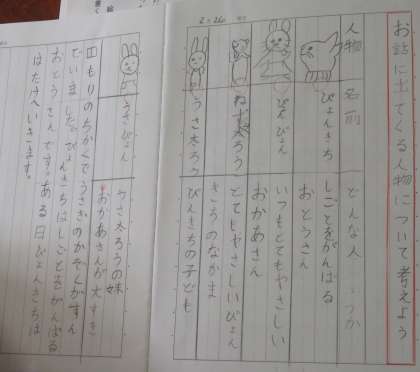 お話に出てくる人物について考えよう
人物
名前
どんな人
ぴょんきち
しごとをがんばる
おとうさん
ぴんぴょん
いつもとてもやさしい
おかあさん
ねず太ろう
とてもやさしいぴょん
きちのなかま
うさ太ろう
ぴんきちの子ども
うさぴょん
うさ太ろうの妹
おかあさんが大すき
山もりのちかくでうさぎのかぞくがすん
でいました。ぴょんきちはしごとをがんばる
おとうさんです。ある日ぴょんきちは
はたけへいきます。